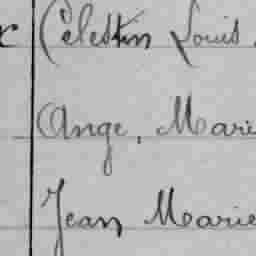 Célestin Louis
Ange, Marie
Jean Marie